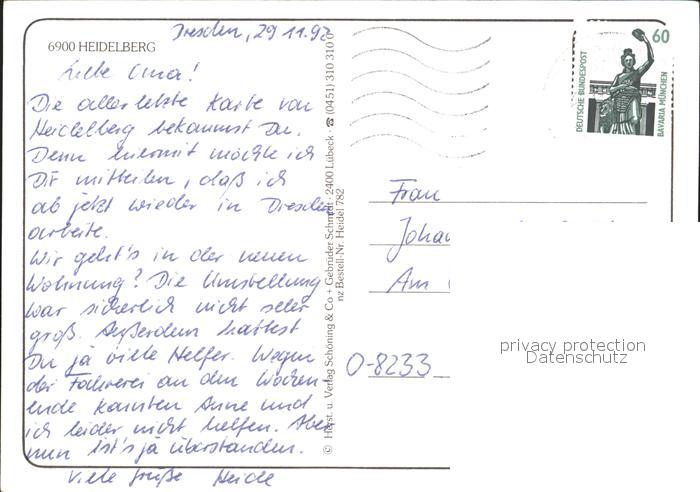 6900 HEIDELBERG
Dresden, 29.11.92
Liebe Oma!
Die allerletzte Karte von
Heidelberg bekommst Du.
Denn hiermit möchte ich
Dir mitteilen, daß ich
ab jetzt wieder in Dresden
arbeite.
Wir geht's in der neuen
Wohnung? Die Umstellung
war sicherlich nicht sehr
groß. Außerdem hattest
Du ja viele Helfer. Wegen
der Fahrerei an den Wochen-
ende konnten Anne und
ich leider nicht helfen. Aber
nun ist's ja überstanden.
Viele Grüße Heide
© Herst. u. Verlag Schöning & Co + Gebrüder Schmidt · 2400 Lübeck · ☎ (0451) 310 310
nz Bestell-Nr. Heidel 782
60
DEUTSCHE BUNDESPOST
BAVARIA MÜNCHEN
Frau
Am
O-8233
privacy protection
Datenschutz